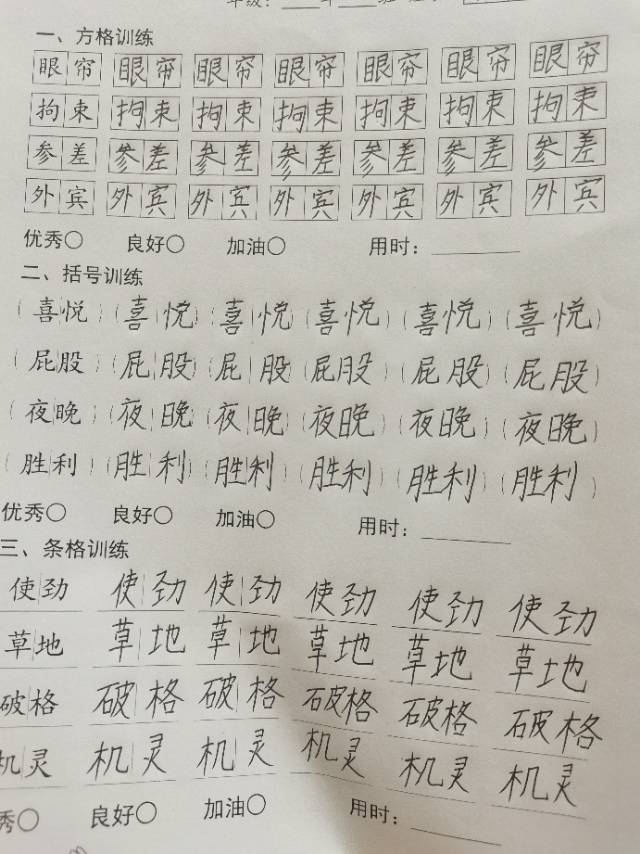 一、方格训练
眼帘 眼帘 眼帘 眼帘 眼帘 眼帘 眼帘
拘束 拘束 拘束 拘束 拘束 拘束 拘束
参差 参差 参差 参差 参差 参差 参差
外宾 外宾 外宾 外宾 外宾 外宾 外宾
优秀○ 良好○ 加油○ 用时：______
二、括号训练
（喜悦）（喜悦）（喜悦）（喜悦）（喜悦）（喜悦）
（屁股）（屁股）（屁股）（屁股）（屁股）（屁股）
（夜晚）（夜晚）（夜晚）（夜晚）（夜晚）（夜晚）
（胜利）（胜利）（胜利）（胜利）（胜利）（胜利）
优秀○ 良好○ 加油○ 用时：______
三、条格训练
使劲 使劲 使劲 使劲 使劲 使劲
草地 草地 草地 草地 草地 草地
破格 破格 破格 破格 破格 破格
机灵 机灵 机灵 机灵 机灵 机灵
秀○ 良好○ 加油○ 用时：______